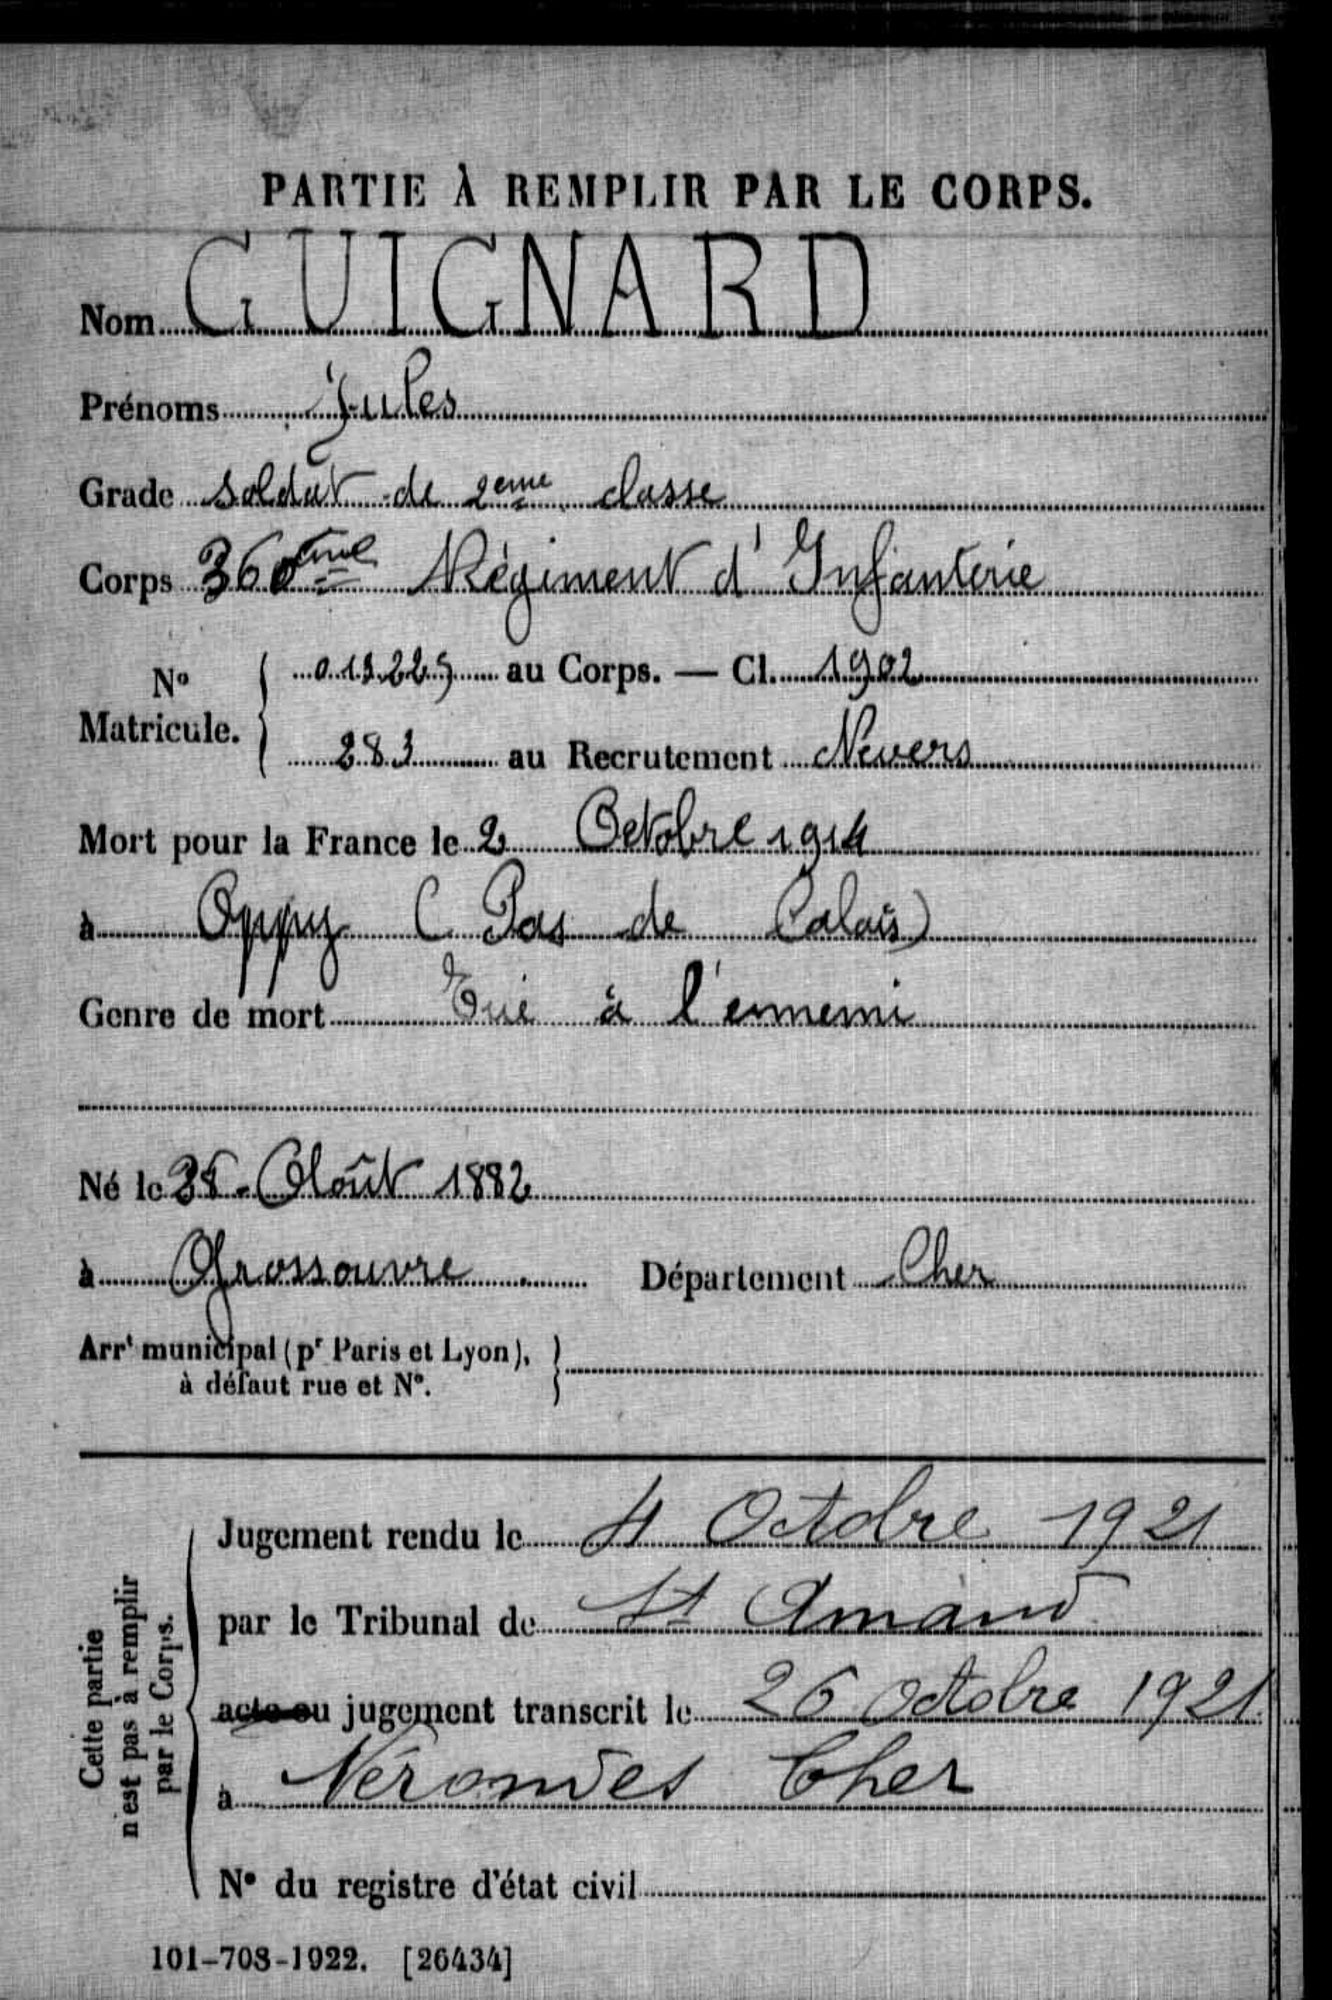 PARTIE À REMPLIR PAR LE CORPS.
Nom GUIGNARD
Prénoms Jules
Grade soldat de 2eme classe
Corps 360ème Régiment d'Infanterie
No Matricule. { 013225 au Corps. — Cl. 1902
283 au Recrutement Nevers
Mort pour la France le 2 Octobre 1914
à Oppy (Pas de Calais)
Genre de mort Tué à l'ennemi
Né le Août 1882
à Grossouvre Département Cher
Arrt municipal (pr Paris et Lyon), à défaut rue et N°. }
Cette partie n'est pas à remplir par le Corps.
Jugement rendu le 4 Octobre 1921
par le Tribunal de St Amand
acte ou jugement transcrit le 26 Octobre 1921
à Nérondes Cher
N° du registre d'état civil
101-708-1922. [26434]